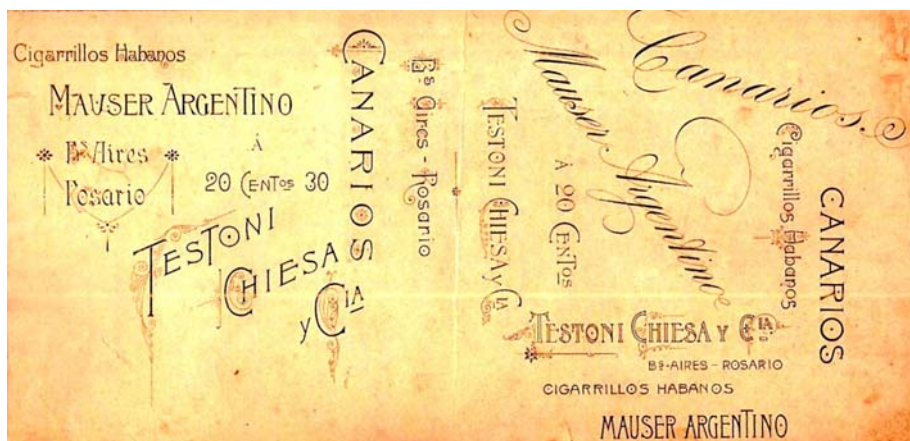 Cigarrillos Habanos
MAUSER ARGENTINO
Á
Bs Aires
Rosario
20 CENTOS 30
TESTONI
CHIESA
y CIA
CANARIOS
Bs Aires - Rosario
TESTONI CHIESA Y CIA
Canarios.
Mauser Argentino
Á 20 CENTOS
Cigarrillos Habanos
CANARIOS
TESTONI CHIESA Y CIA
BS-AIRES - ROSARIO
CIGARRILLOS HABANOS
MAUSER ARGENTINO